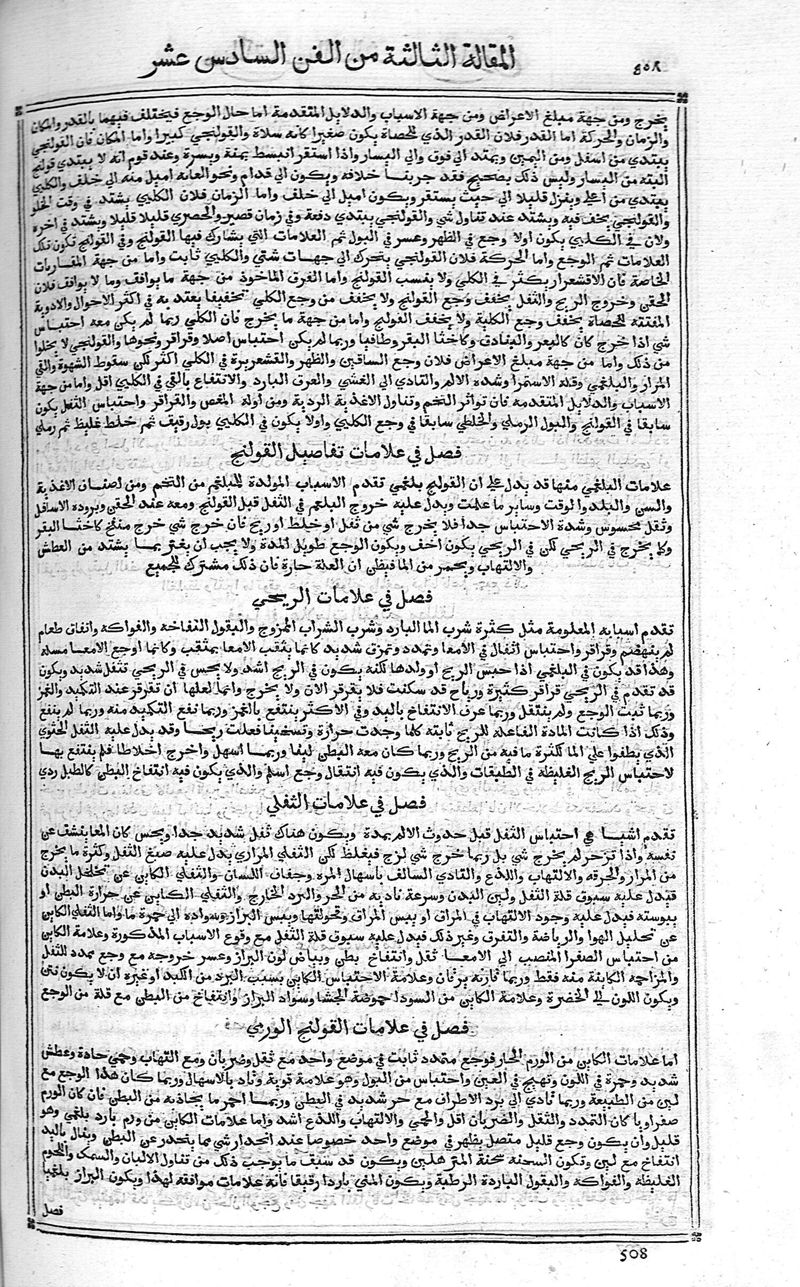 المقالة الثالثة من الفن السادس عشر
٥٠٨
يخرج ومن جهة مبلغ الاعراض ومن جهة الاسباب والدلايل المتقدمة اما حال الوجع فيختلف فيهما بالقدر والمكان
والزمان والحركة اما القدر فلان القدر الذي للحصاة يكون صغيرا كانه سلاة والقولنجي كبيرا واما المكان فان القولنجي
يبتدي من اسفل ومن اليمين ويمتد الي فوق والي اليسار واذا استقر انبسط يمنة ويسرة وعند قوم انه لا يبتدي قولنج
البتة من اليسار وليس ذلك بصحيح فقد جربنا خلافه ويكون الي قدام ونحو العانه اميل منه الي خلف والكلي
يبتدي من اعلي وينزل قليلا الي حيث يستقر ويكون اميل الي خلف واما الزمان فلان الكلي يشتد في وقت الخلو
والقولنجي يخف فيه ويشتد عند تناول شي والقولنجي يبتدي دفعة وفي زمان قصير والحصري قليلا قليلا ويشتد في اخره
ولان في الكلي يكون اولا وجع في الظهر وعسر في البول ثم العلامات التي يشارك فيها القولنج وفي القولنج تكون تلك
العلامات ثم الوجع واما الحركة فلان القولنجي يتحرك الي جهات شتي والكلي ثابت واما من جهة المقارنات
الخاصة فان الاقشعرار يكثر في الكلي ولا ينسب القولنج واما الفرق الماخوذ من جهة ما يوافق وما لا يوافق فلان
الحقن وخروج الريح والثفل يخفف وجع القولنج ولا يخفف من وجع الكلي تخفيفا يعتد به في اكثر الاحوال والادوية
المفتته للحصاة يخفف وجع الكلية ولا يخفف القولنج واما من جهة ما يخرج فان الكلي ربما لم يكن معه احتباس
شي اذا خرج كان كالبعر والبنادق وكاخثا البقر وطافيا وربما لم يكن احتباس اصلا وقراقر ونحوها والقولنجي لا يخلوا
من ذلك واما من جهة مبلغ الاعراض فلان وجع الساقين والظهر والقشعريرة في الكلي اكثر لكن سقوط الشهوة والقي
المراري والبلغمي وقلة الاستمرا وشدة الالم والتادي الي الغشي والعرق البارد والانتفاع بالقي في الكلي اقل واما من جهة
الاسباب والدلايل المتقدمة فان تواتر التخم وتناول الاغذية الردية ومن اوله المغص والقراقر واحتباس الثفل يكون
سابقا في القولنج والبول الرملي والخلطي سابقا في وجع الكلي واولا يكون في الكلي بول رقيق ثم خلط غليظ ثم رملي
فصل في علامات تفاصيل القولنج
علامات البلغمي منها قد يدل علي ان القولنج بلغمي تقدم الاسباب المولدة للبلغم من التخم ومن اصناف الاغذية
والسن والبلد والوقت وساير ما علمت ويدل عليه خروج البلغم في الثفل قبل القولنج ومعه عند الحقن وبرودة الاسافل
وثقل محسوس وشدة الاحتباس جدا فلا يخرج شي من ثفل او خلط او ريح فان خرج شي خرج منتفخ كاخثا البقر
وكما يخرج في الريحي لكن في الريحي يكون اخف ويكون الوجع طويل المدة ولا يجب ان يغتر بما يشتد من العطش
والالتهاب ويحمر من الما فيظن ان العلة حارة فان ذلك مشترك للجميع
فصل في علامات الريحي
تقدم اسبابه المعلومة مثل كثرة شرب الما البارد وشرب الشراب الممزوج والبقول النفاخة والفواكه واتفاق طعام
لم ينهضم وقراقر واحتباس اثفال في الامعا وتمدد وتمزق شديد كانما يثقب الامعا بمثقب وكانما اوجع الامعا مسلة
وهذا قد يكون في البلغمي اذا حبس الريح او ولدها لكنه يكون في الريح اشد ولا يحس في الريحي بثقل شديد ويكون
قد تقدم في الريحي قراقر كثيرة ورياح قد سكنت فلا يقرقر الان ولا يخرج وانما لعلها ان تقرقر عند التكميد والغمز
وربما ثبت الوجع ولم ينتقل وربما عرف الانتفاخ باليد وفي الاكثر ينتفع بالغمز وربما نفع التكميد منه وربما لم ينفع
وذلك اذا كانت المادة الفاعلة للريح ثابته كلما وجدت حرارة وتسخينا فعلت ريحا وقد يدل عليه الثفل الخثوي
الذي يطفوا علي الما لكثرة ما فيه من الريح وربما كان معه البطن لينا وربما اسهل واخرج اخلاطا فلم ينتفع بها
لاحتباس الريح الغليظة في الطبقات والذي يكون فيه انتقال وجع اسلم والذي يكون فيه انتفاخ البطن كالطبل ردي
فصل في علامات الثفلي
تقدم اشيا هي احتباس الثفل قبل حدوث الالم بمدة ويكون هناك ثقل شديد جدا ويحس كان المعا ينشف عن
نفسه واذا تزحر لم يخرج شي بل ربما خرج شي لزج فيغلظ لكن الثفلي المراري يدل عليه صبغ الثفل وكثرة ما يخرج
من المرار والحرقة والالتهاب واللذع والتادي السالف باسهال المره وجفاف اللسان والثفلي الكاين عن تخلخل البدن
فيدل عليه سبوق قلة الثفل ولين البدن وسرعة تاديه من الحر والبرد الخارج والثفلي الكاين عن حرارة البطن او
يبوسته فيدل عليه وجود الالتهاب في المراق او يبس المراق ونحولتها ويبس البراز وسواده الي حمرة ما واما الثفلي الكاين
عن تحليل الهوا والرياضة والتفرق وغير ذلك فيدل عليه سبوق قلة الثفل مع وقوع الاسباب المذكورة وعلامة الكاين
من احتباس الصفرا المنصب الي الامعا ثقل وانتفاخ بطن وبياض لون البراز وعسر خروجه مع وجع ممدد للثفل
والمزاحمة الكاينة منه فقط وربما قارنه يرقان وعلامة الاحتباس الكاين بسبب البرد من الكبد او غيره ان لا يكون نتن
ويكون اللون الي الخضرة وعلامة الكاين من السودا حموضة الجشا وسواد البراز وانتفاخ من البطن مع قلة من الوجع
فصل في علامات القولنج الورمي
اما علامات الكاين من الورم الحار فوجع متمدد ثابت في موضع واحد مع ثقل وضربان ومع التهاب وحمي حادة وعطش
شديد وحمرة في اللون وتهيج في العين واحتباس من البول وهو علامة قوية وتاذ بالاسهال وربما كان هذا الوجع مع
لين من الطبيعة وربما تادي الي برد الاطراف مع حر شديد في البطن وربما احمر ما يحاذيه من البطن فان كان الورم
صفراويا كان التمدد والثقل والضربان اقل والحمي والالتهاب واللذع اشد واما علامات الكاين من ورم بارد بلغمي وهو
قليل وان يكون وجع قليل متصل يظهر في موضع واحد خصوصا عند انحدار شي مما ينحدر عن البطن وينال باليد
انتفاخ مع لين وتكون السحنة سحنة المترهلين ويكون قد سبق ما يوجب ذلك من تناول الالبان والسمك واللحوم
الغليظة والفواكه والبقول الباردة الرطبة ويكون المني باردا رقيقا فانه علامات موافقه لهذا ويكون البراز بلغميا
فصل
508